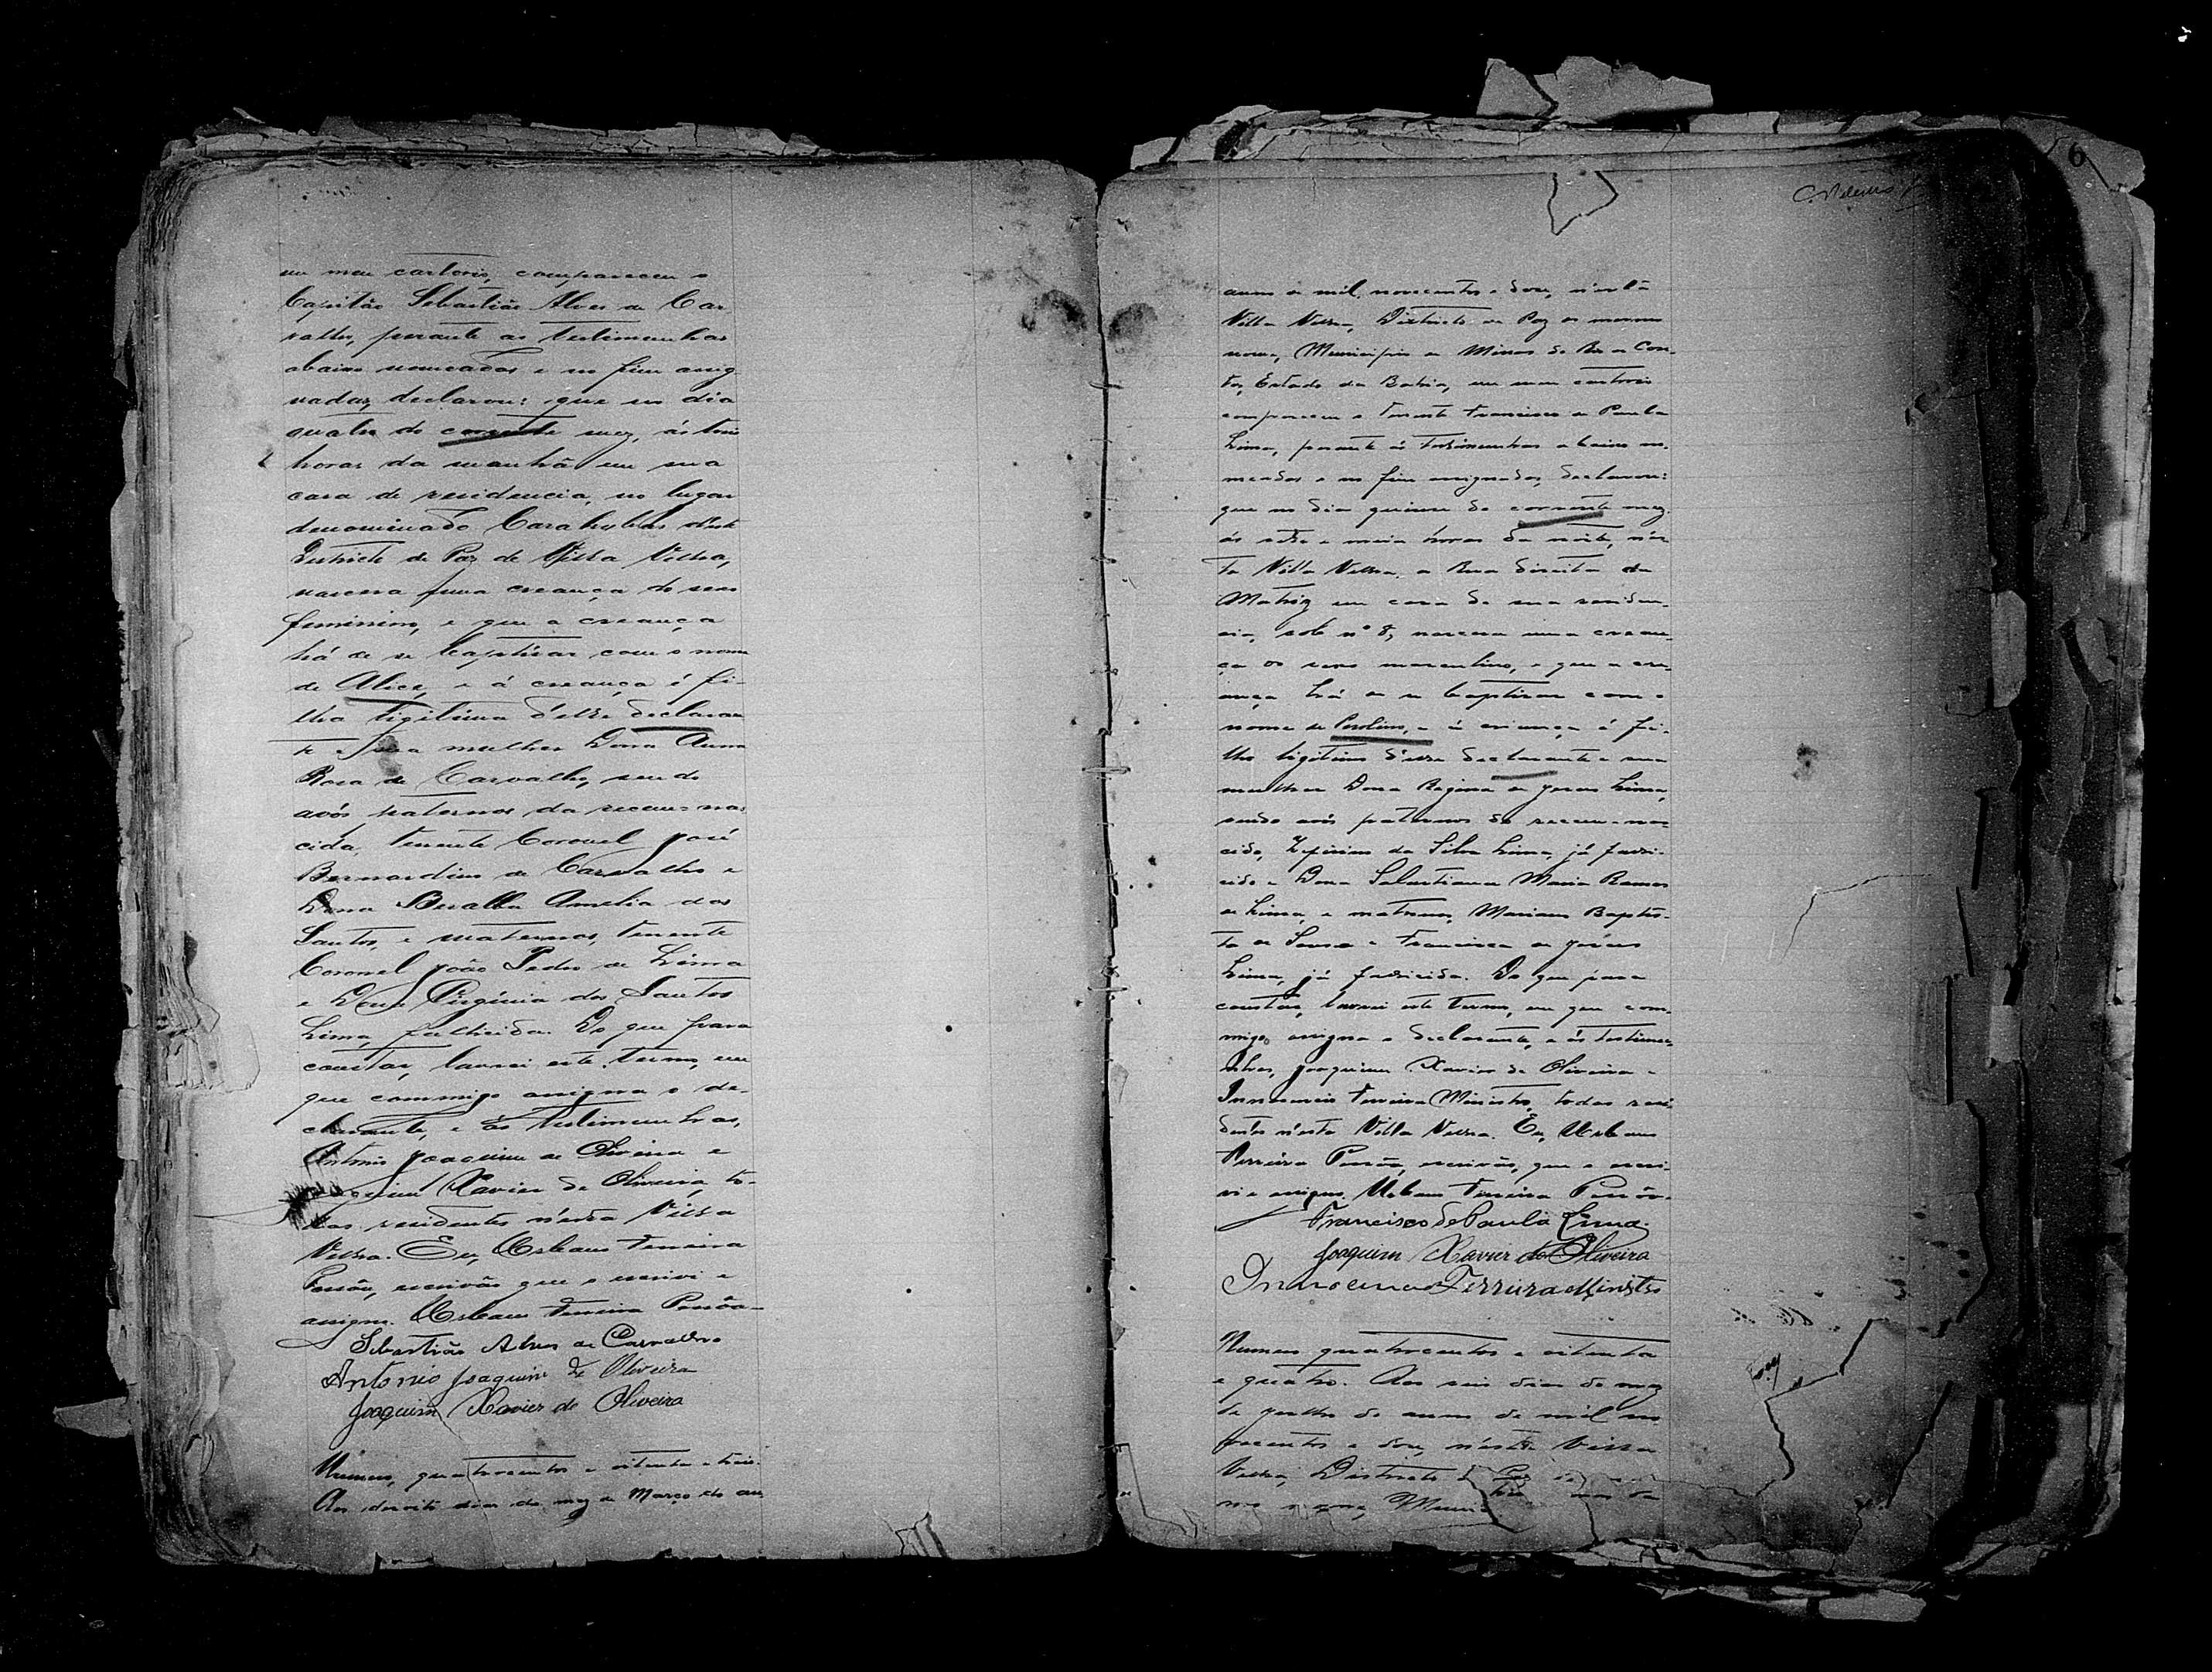 em meu cartorio, compareceu o
Capitão Sebastião Alves de Car
valho, perante as testimunhas
abaixo nomeadas e no fim assig
nadas, declarou: que no dia
quatro do corrente mez, ás
horas da manhã em sua
casa de residencia, no lugar
denominado d'este
Districto de Paz de Villa Velha,
nascera uma creança do sexo
feminino, e que a creança
há de se baptisar com o nome
de Alice, e á creança é fi-
lha ligitima d'elle declaran
te e sua mulher Dona Anna
Rosa de Carvalho, sendo
avós paternos da recem-nas
cida, tenente Coronel José
Bernardino de Carvalho e
Dona Amelia dos
Santos, e maternos, tenente
Coronel João Pedro de Lima
e Dona Virginia dos Santos
Lima, fallecida. Do que para
constar, lavrei este termo, em
que commigo assigna o de-
clarante, e ás testimunhas,
Antonio Joaquim de Oliveira e
Joaquim Xavier de Oliveira, to-
dos residentes n'esta Villa
Velha. Eu, Urbano Ferreira
Pessôa, escrivão que o escrivi e
assigno. Urbano Ferreira Pessôa
Sebastião Alves de Carvalho
Antonio Joaquim de Oliveira
Joaquim Xavier de Oliveira
Numero, quatrocentos e oitenta e treis.
Aos desoito dias do mez de Março do an
6
anno de mil novecentos e dose, n'esta
Villa Velha, Districto de Paz do mesmo
nome, Municipio de Minas do Rio de Con-
tas, Estado da Bahia, em meu cartorio
compareceu o tenente Francisco de Paula
Lima, perante ás testimunhas abaixo no-
meadas e no fim assignadas, declarou:
que no dia quinse do corrente mez,
ás sete e meia horas da noite, n'es
ta Villa Velha, a Rua direita da
Matriz em casa de sua residen-
cia, sob nº 8, nascera uma crean-
ça do sexo masculino, e que a cre-
ança há de se baptisar com o
nome de e á criança é fi-
lho ligitimo d'elle declarante e sua
mulher Dona Regina de Jesus Lima,
sendo avós paternos do recem-nas-
cido, Zeferino da Silva Lima, já falle-
cido e Dona Sebastiana Maria Ramos
de Lima, e maternos, Mariano Baptis-
ta de Sousa e Francisca de Jesus
Lima, já fallecida. Do que para
constar, lavrei este termo, em que com-
migo assigna o declarante, e ás testimu-
nhas, Joaquim Xavier de Oliveira e
Innocencio Ferreira Ministro, todos resi-
dentes n'esta Villa Velha. Eu, Urbano
Ferreira Pessôa, escrivão, que o escri-
vi e assigno. Urbano Ferreira Pessôa
Francisco de Paula Lima
Joaquim Xavier de Oliveira
Innocencio Ferreira Ministro
Numero quatrocentos e oitenta
e quatro. Aos seis dias do mez
de Julho do anno de mil no
vecentos e dose, n'esta Villa
Velha, Districto de Paz do
mo nome,